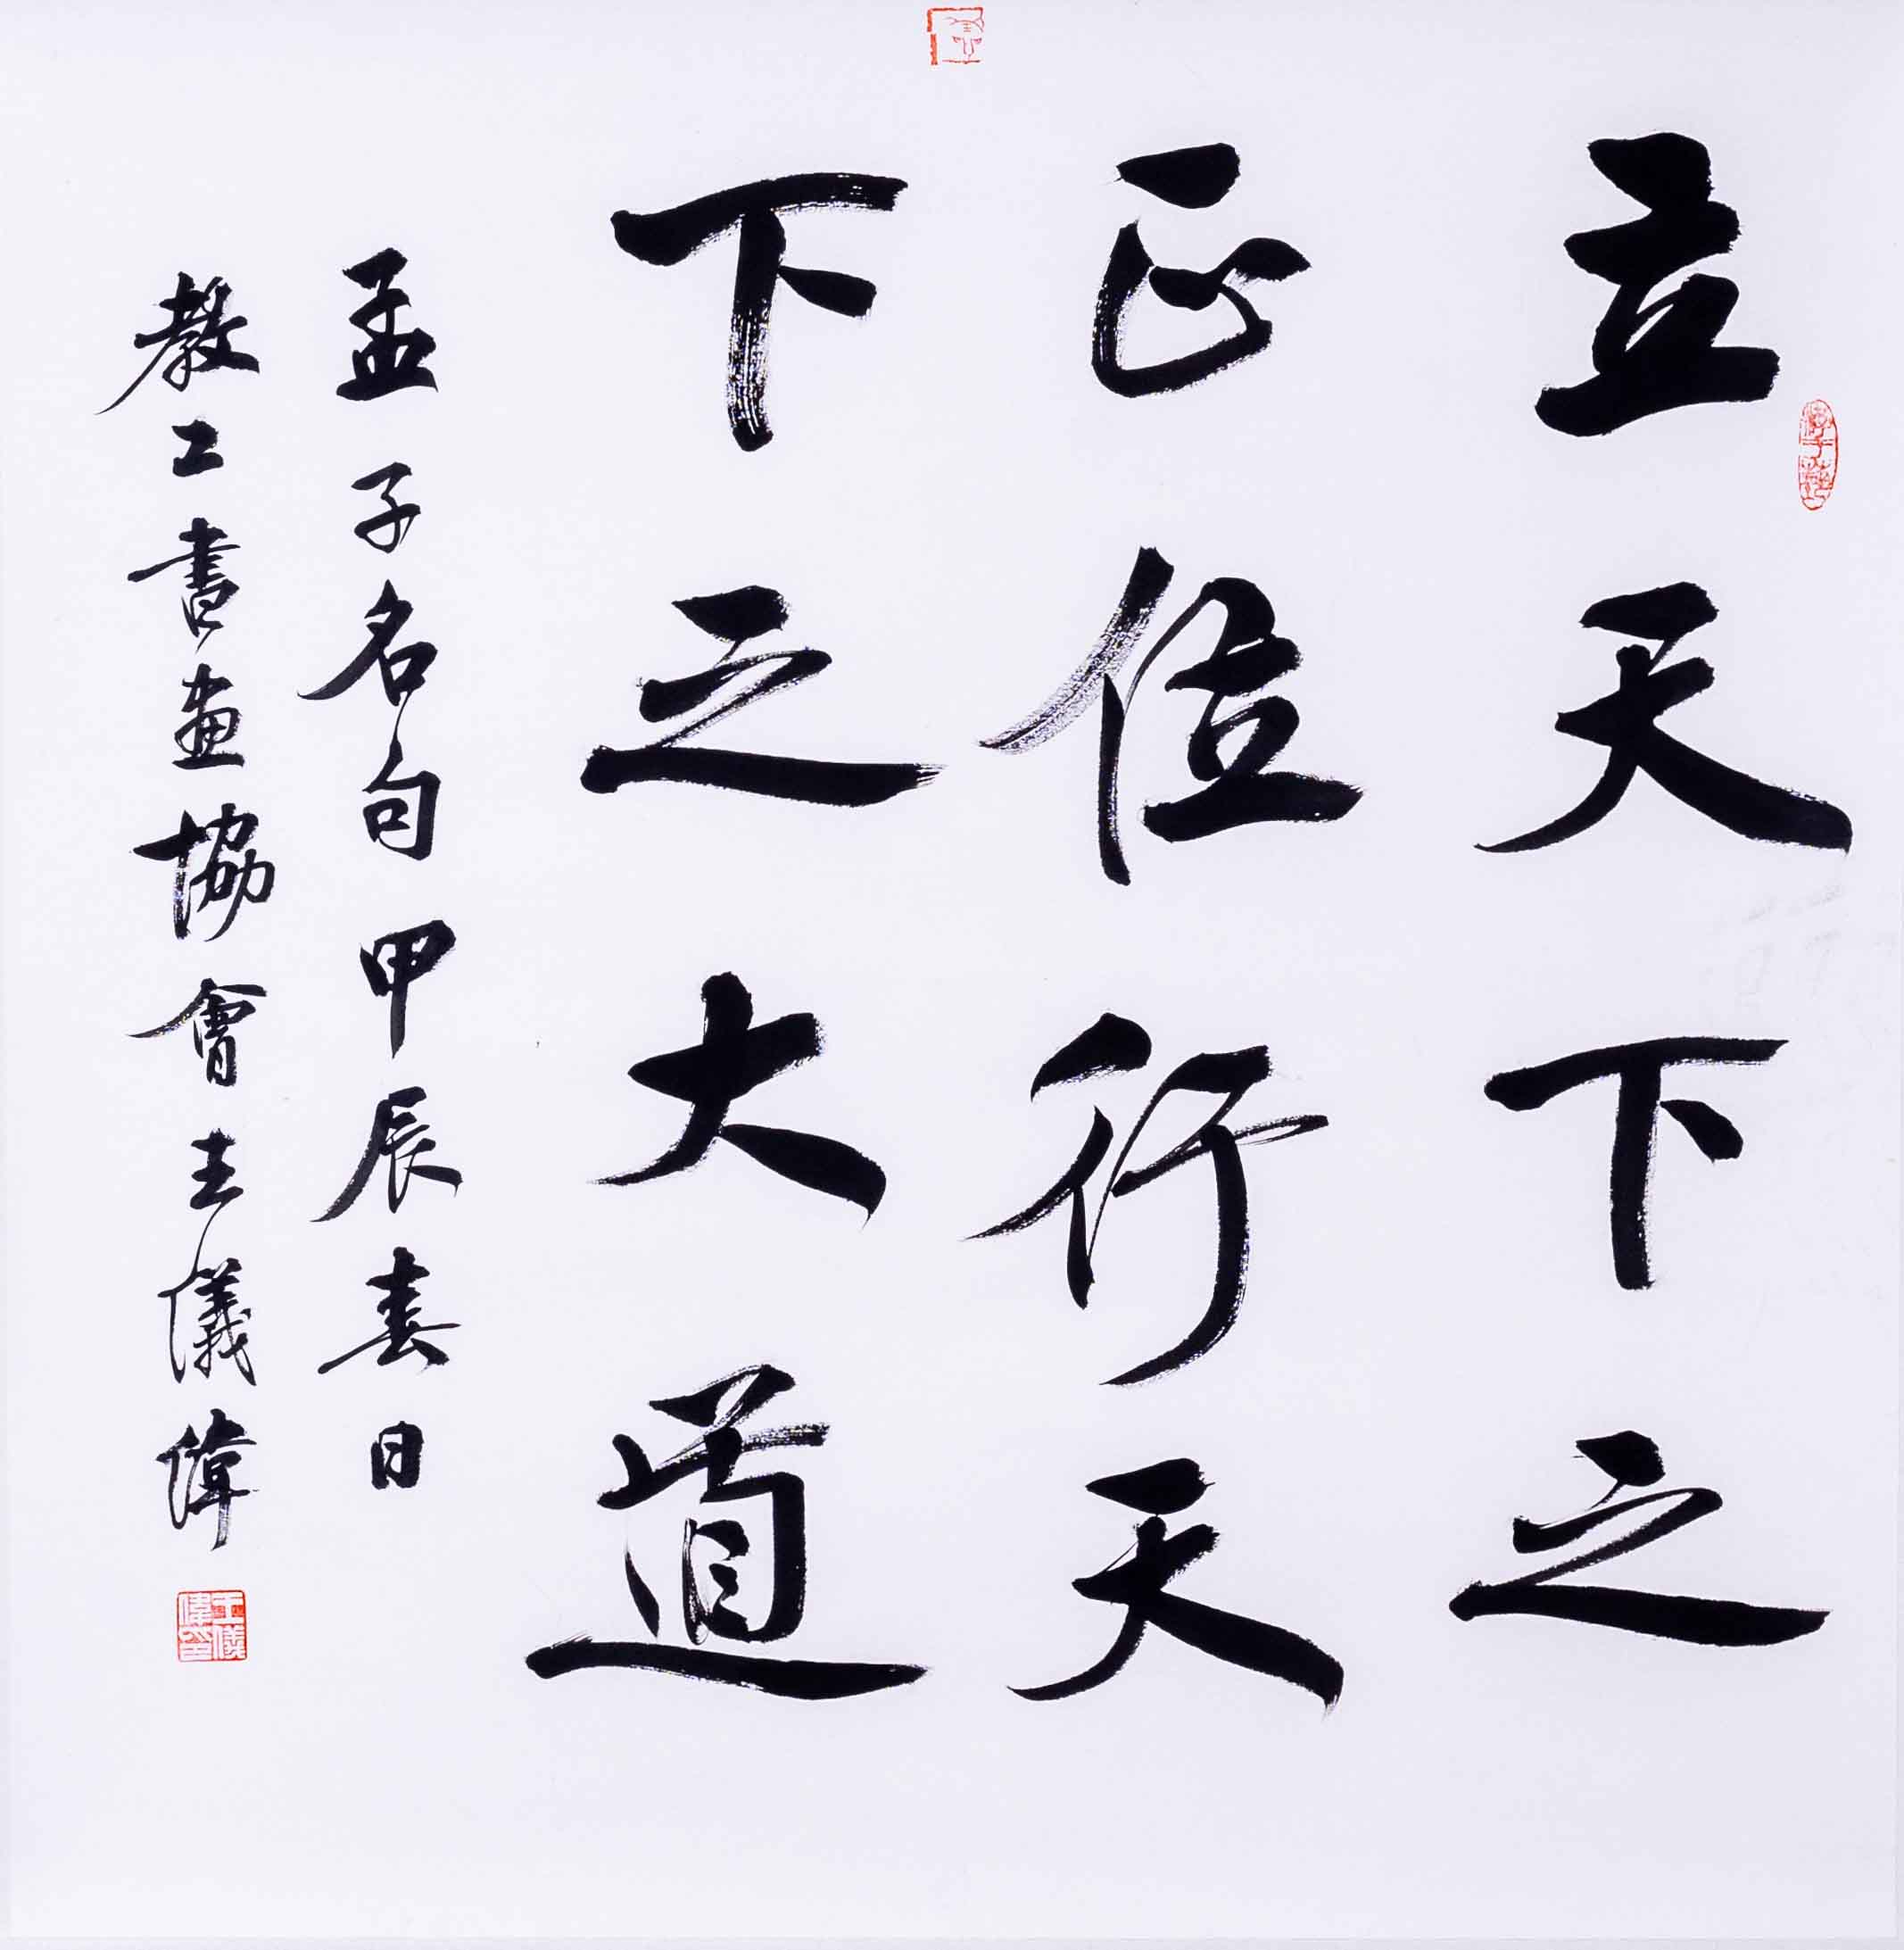 立天下之
正位行天
下之大道
孟子名句甲辰春日
教工書畫協會王儀偉
王儀偉印